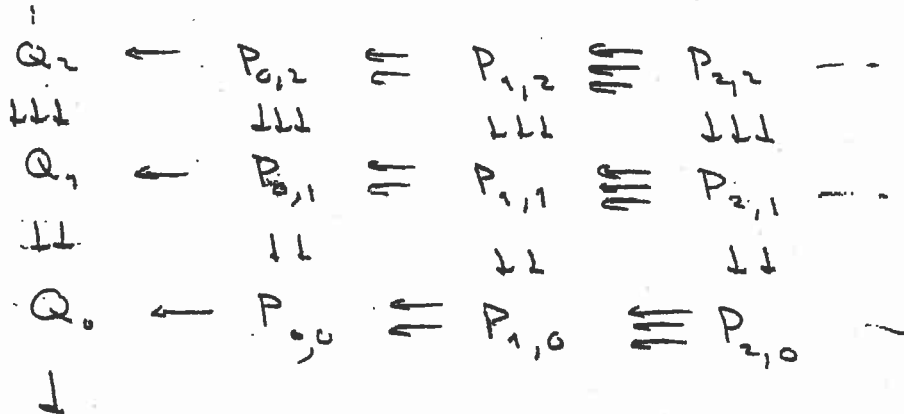 Q₂ ← P₀,₂ ⇇ P₁,₂ ⇚ P₂,₂ ---
↓↓↓ ↓↓↓ ↓↓↓ ↓↓↓
Q₁ ← P₀,₁ ⇇ P₁,₁ ⇚ P₂,₁ ---
↓↓ ↓↓ ↓↓ ↓↓
Q₀ ← P₀,₀ ⇇ P₁,₀ ⇚ P₂,₀ —
↓